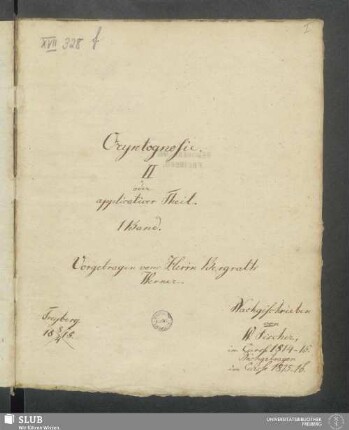 XVII 328 f
I
Oryktognosie.
II
oder
applicativer Theil.
1 Band.
Vorgetragen vom Herrn Bergrath
Werner.
Freyberg
18
Nachgeschrieben
von
W. Fischer,
im Curse 1814-15
Nachgetragen
im Curse 1815-16.
SLUB
Wir führen Wissen.
UNIVERSITÄTSBIBLIOTHEK
FREIBERG